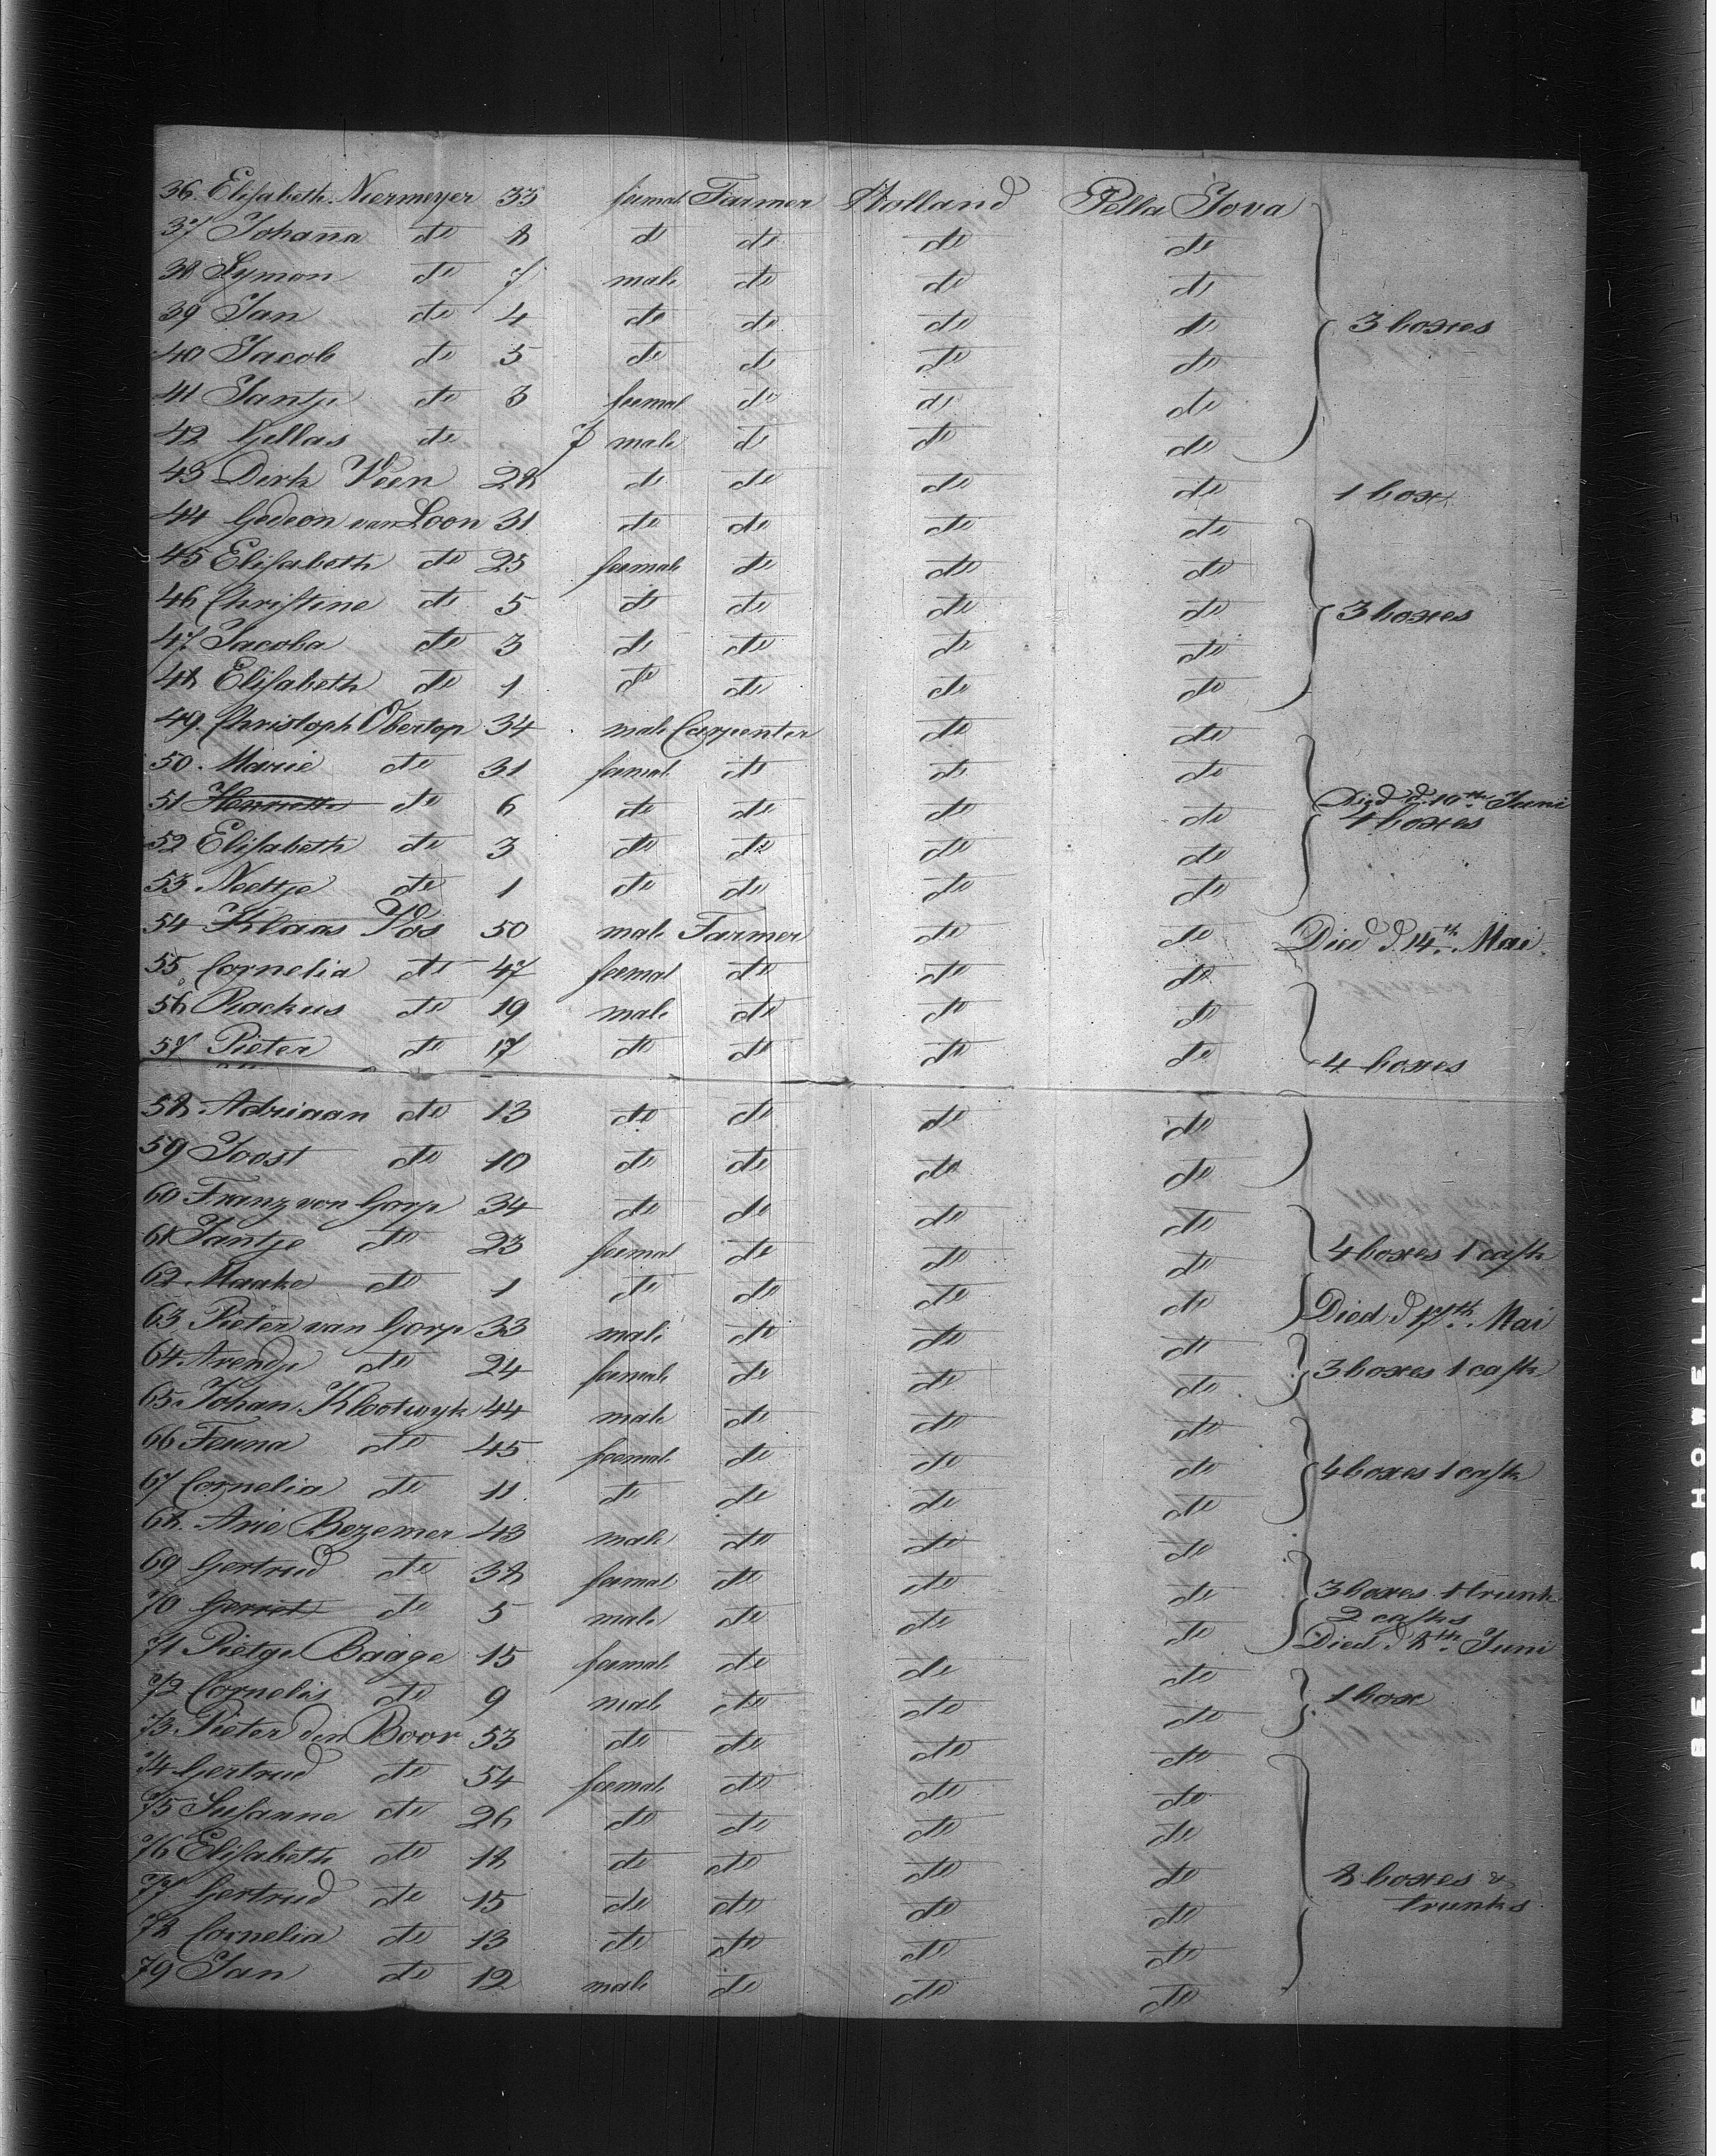 36. Elisabeth Niermeyer 33 femal Farmer Holland Pella Jova
37 Johana do 8 do do do do
38 Symon do 7 male do do do
39 Jan do 4 do do do do 3 boxes
40 Jacob do 5 do do do do
41 Jantje do 3 femal do do do
42 Gellas do male do do do
43 Dirk Veen 28 do do do do 1 box
44 Gedeon van Loon 31 do do do do
45 Elisabeth do 25 femal do do do
46 Christine do 5 do do do do 3 boxes
47 Jacoba do 3 do do do do
48 Elisabeth do 1 do do do do
49. Christoph Obertop 34 male Carpenter do do
50. Marie do 31 femal do do do
51 Henriette do 6 do do do do Died d. 10th Juni
4 boxes
52 Elisabeth do 3 do do do do
53 Neeltje do 1 do do do do
54 Klaas Vos 50 male Farmer do do Died d 14th Mai
55 Cornelia do 47 femal do do do
56 Rockus do 19 male do do do
57 Pieter do 17 do do do do 4 boxes
58 Adriaan do 13 do do do do
59 Joost do 10 do do do do
60 Franz von Gorp 34 do do do do
61 Jantje do 23 femal do do do 4 boxes 1 cask
62 Maake do 1 do do do do Died d 17th Mai
63 Pieter van Gorp 33 male do do do
64 Arendje do 24 femal do do do 3 boxes 1 cask
65 Johan Klootwyk 44 male do do do
66 Teuna do 45 femal do do do 4 boxes 1 cask
67 Cornelia do 11 do do do do
68. Arie Bezemer 43 male do do do
69 Gertrud do 38 femal do do do 3 boxes 1 trunk
2 casks
70 Gerrit do 5 male do do do Died d 8th Juni
71 Pietge Baage 15 femal do do do
72 Cornelis do 9 male do do do 1 box
73 Pieter den Boor 53 do do do do
74 Gertrud do 54 femal do do do
75 Susanne do 26 do do do do
76 Elisabeth do 18 do do do do 8 boxes &
trunks
77 Gertrud do 15 do do do do
78 Cornelia do 13 do do do do
79 Jan do 12 male do do do
BELL & HOWELL